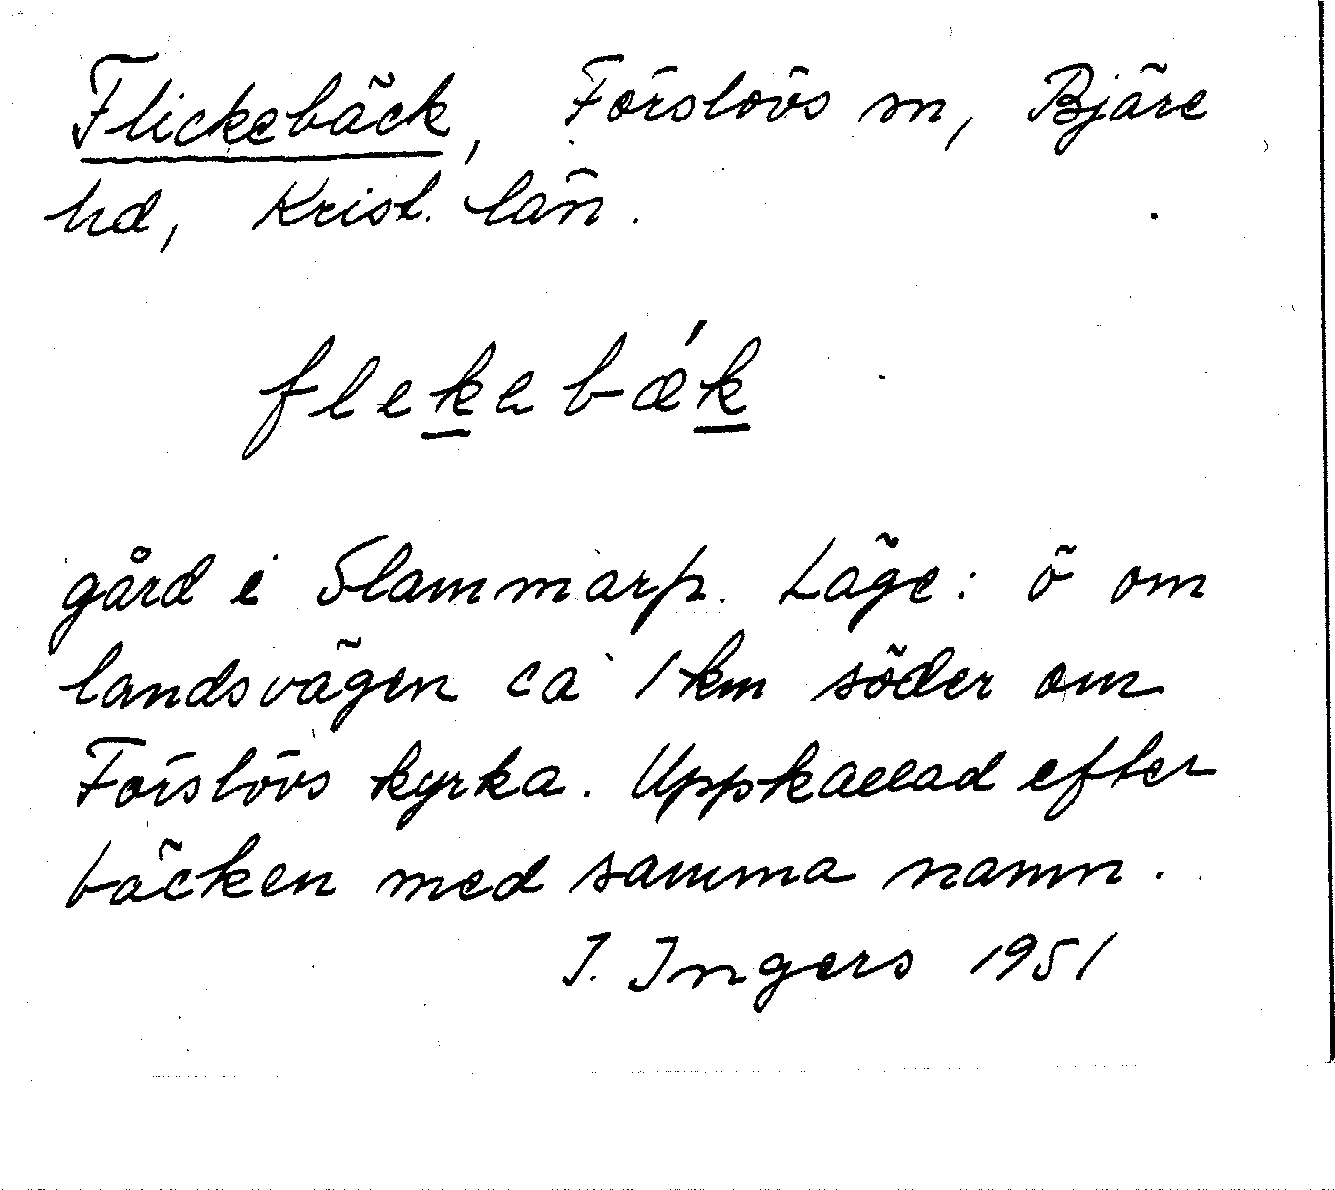 Flickebäck, Förslövs sn, Bjäre
hd, Krist. län.
flekebǽk
gård i Slammarp. Läge: ö om
landsvägen ca 1 km söder om
Förslövs kyrka. Uppkallad efter
bäcken med samma namn.
I. Ingers 1951